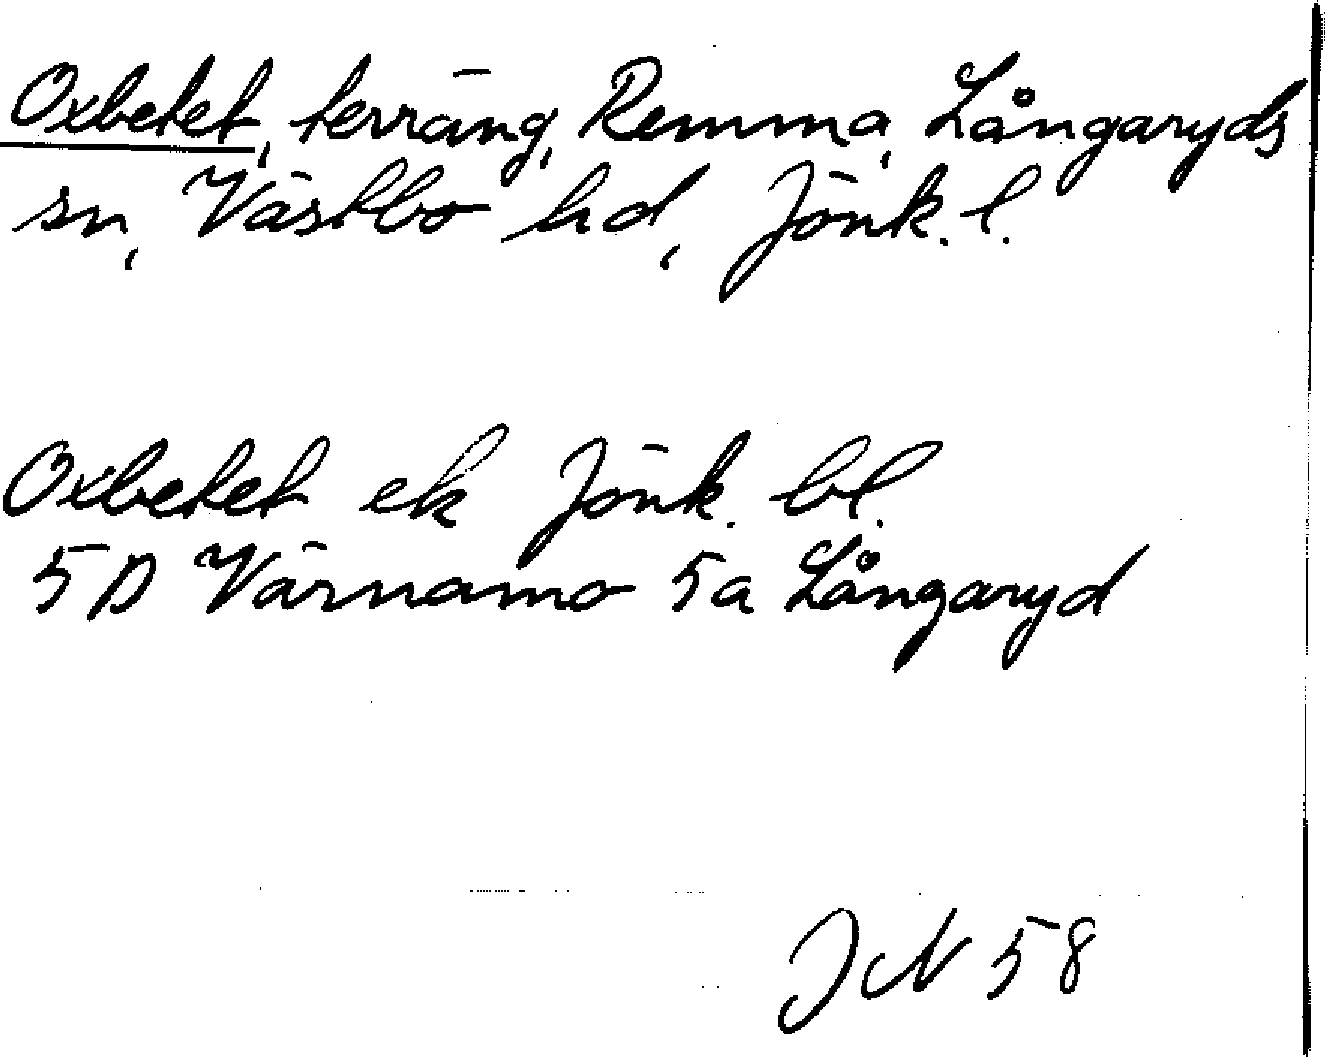 Oxbetet, terräng, Remma, Långaryds
sn, Västbo hd, Jönk. l.
Oxbetet ek Jönk. bl.
5D Värnamo 5a Långaryd
JN 58